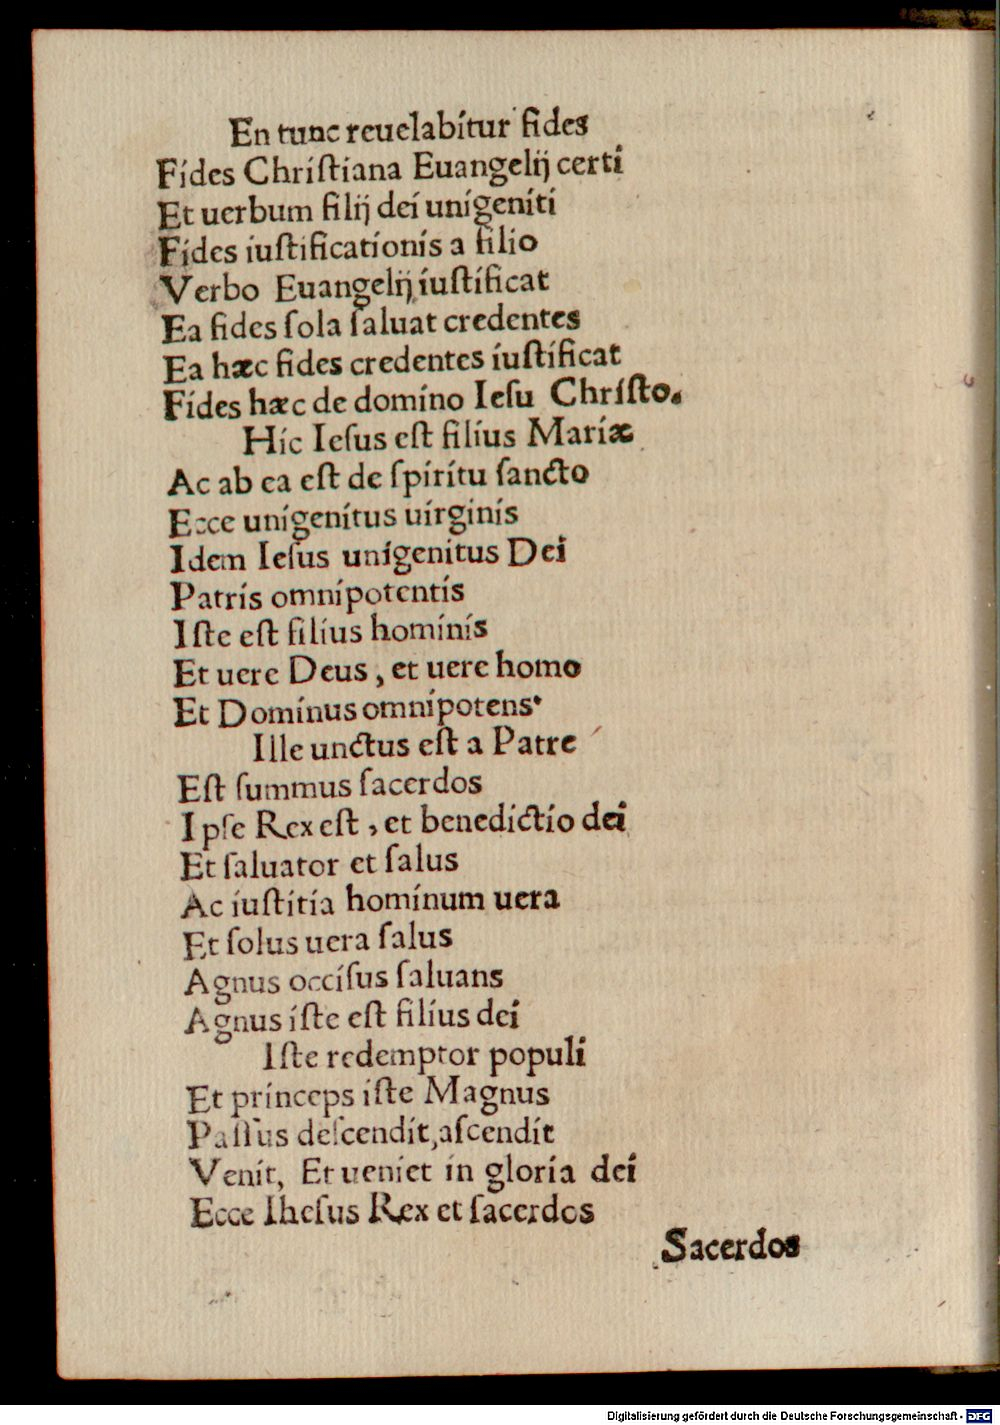 En tunc reuelabitur fides
Fides Chriſtiana Euangelij certi
Et uerbum filij dei unigeniti
Fides iuſtificationis a filio
Verbo Euangelij iuſtificat
Ea fides ſola ſaluat credentes
Ea hæc fides credentes iuſtificat
Fides hæc de domino Ieſu Chriſto.
Hic Ieſus eſt filius Mariæ
Ac ab ea eſt de ſpiritu ſancto
Ecce unigenitus uirginis
Idem Ieſus unigenitus Dei
Patris omnipotentis
Iſte eſt filius hominis
Et uere Deus, et uere homo
Et Dominus omnipotens.
Ille unctus eſt a Patre
Eſt ſummus ſacerdos
Ipſe Rex eſt, et benedictio dei
Et ſaluator et ſalus
Ac iuſtitia hominum uera
Et ſolus uera ſalus
Agnus occiſus ſaluans
Agnus iſte eſt filius dei
Iſte redemptor populi
Et princeps iſte Magnus
Paſſus deſcendit, aſcendit
Venit, Et ueniet in gloria dei
Ecce Iheſus Rex et ſacerdos
Sacerdos
Digitalisierung gefördert durch die Deutsche Forschungsgemeinschaft - DFG